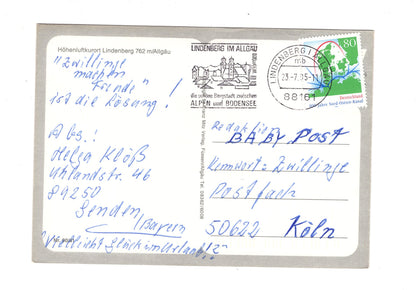 Höhenluftkurort Lindenberg 762 m/Allgäu
"Zwillinge
machen
Freude"!
ist die Lösung!
Abs.:
Helga Klöß
Uhlandstr. 46
89250
Senden
/Bayern
"Vielleicht Glück im Urlaub!?"
LINDENBERG IM ALLGÄU
die schöne Bergstadt zwischen
ALPEN und BODENSEE
LINDENBERG I ALLGÄU
mb
23.-7.95-1
88161
80
Deutschland
100 Jahre Nord-Ostsee-Kanal
Redaktion
BABY Post
Kennwort: Zwillinge
Postfach
50622 Köln